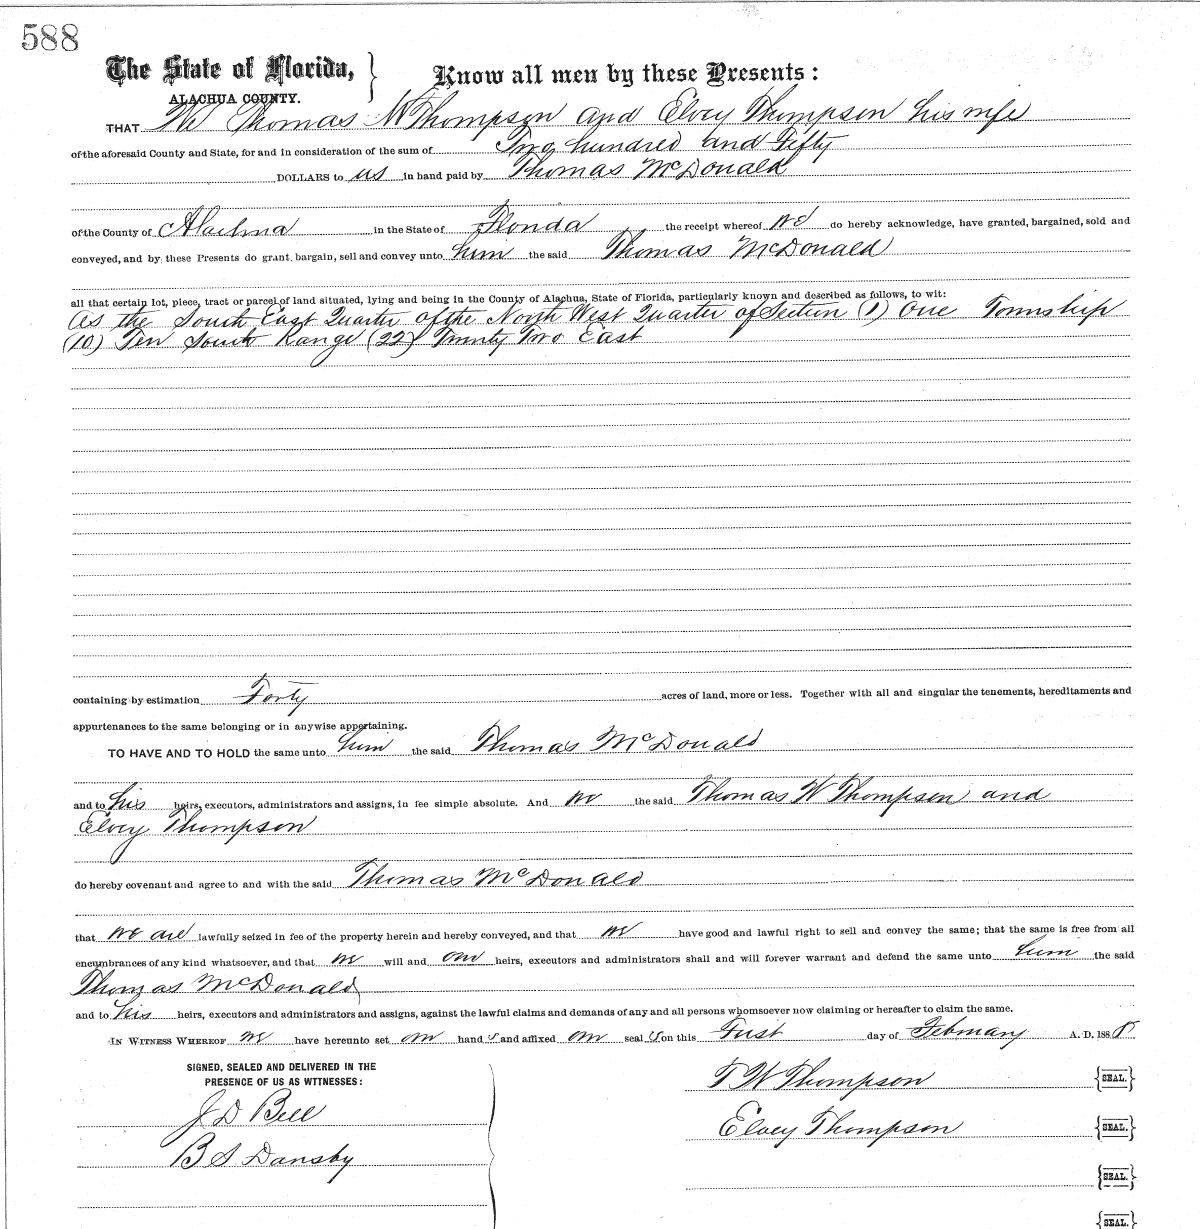 588
The State of Florida, Know all men by these Presents:
ALACHUA COUNTY.
THAT We Thomas W Thompson and Elvey Thompson his wife
of the aforesaid County and State, for and in consideration of the sum of Two hundred and Fifty
DOLLARS to us in hand paid by Thomas McDonald
of the County of Alachua in the State of Florida the receipt whereof we do hereby acknowledge, have granted, bargained, sold and
conveyed, and by these Presents do grant, bargain, sell and convey unto him the said Thomas McDonald
all that certain lot, piece, tract or parcel of land situated, lying and being in the County of Alachua, State of Florida, particularly known and described as follows, to wit:
As the South East Quarter of the North West Quarter of Section (1) One Township
(10) Ten South Range (22) Twenty Two East
containing by estimation Forty acres of land, more or less. Together with all and singular the tenements, hereditaments and
appurtenances to the same belonging or in anywise appertaining.
TO HAVE AND TO HOLD the same unto him the said Thomas McDonald
and to his heirs, executors, administrators and assigns, in fee simple absolute. And we the said Thomas W Thompson and
Elvey Thompson
do hereby covenant and agree to and with the said Thomas McDonald
that we are lawfully seized in fee of the property herein and hereby conveyed, and that we have good and lawful right to sell and convey the same; that the same is free from all
encumbrances of any kind whatsoever, and that we will and our heirs, executors and administrators shall and will forever warrant and defend the same unto him the said
Thomas McDonald
and to his heirs, executors and administrators and assigns, against the lawful claims and demands of any and all persons whomsoever now claiming or hereafter to claim the same.
IN WITNESS WHEREOF we have hereunto set our hand s and affixed our seal s on this First day of February A. D. 1888
SIGNED, SEALED AND DELIVERED IN THE
PRESENCE OF US AS WITNESSES:
T W Thompson {SEAL.}
J D Bell
Elvey Thompson {SEAL.}
B S Dansby
{SEAL.}
{SEAL.}